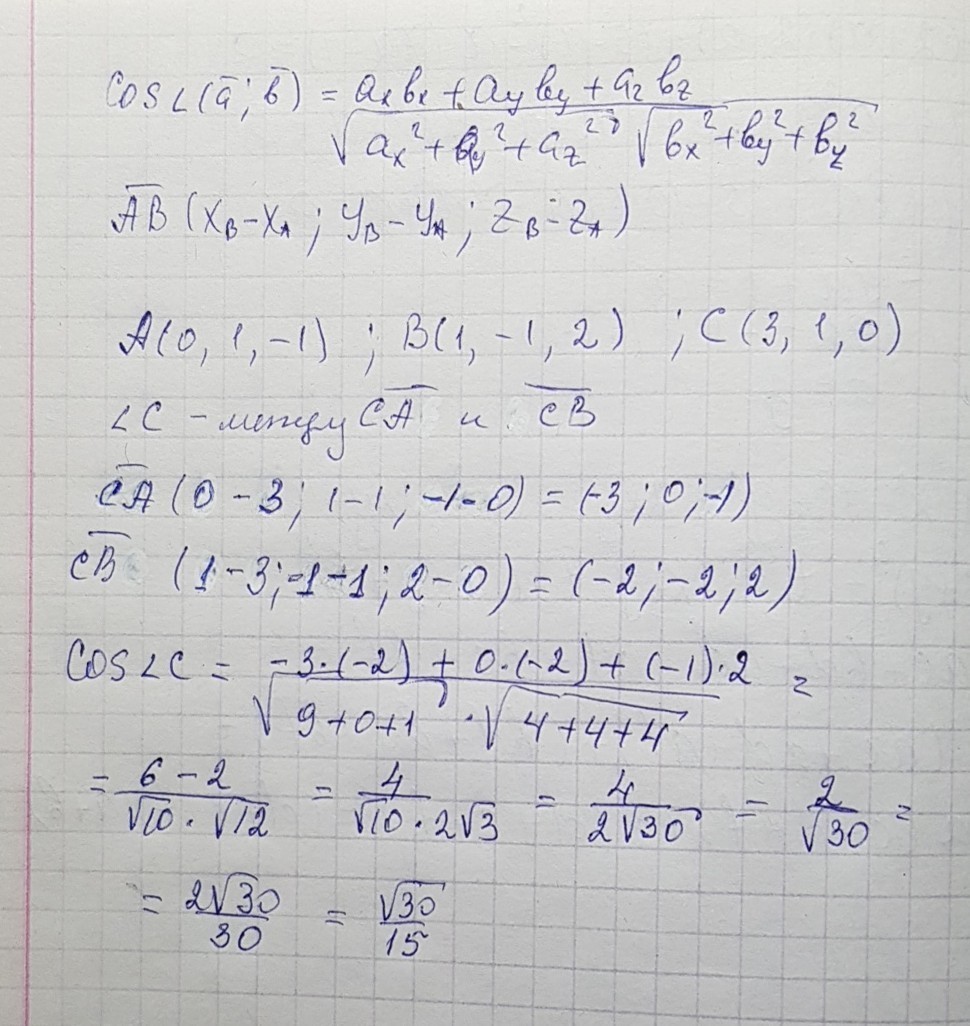 cos∠(a̅; b̅) = (aₓbₓ + a_y b_y + a_z b_z) / (√(aₓ² + a_y² + a_z²) √(bₓ² + b_y² + b_z²))
A̅B̅ (x_B − x_A ; y_B − y_A ; z_B − z_A)
A(0, 1, −1) ; B(1, −1, 2) ; C(3, 1, 0)
∠C − между C̅A̅ и C̅B̅
C̅A̅ (0 − 3; 1 − 1; −1 − 0) = (−3; 0; −1)
C̅B̅ (1 − 3; −1 − 1; 2 − 0) = (−2; −2; 2)
cos∠C = (−3·(−2) + 0·(−2) + (−1)·2) / (√(9+0+1) · √(4+4+4)) =
= (6 − 2) / (√10 · √12) = 4 / (√10 · 2√3) = 4 / (2√30) = 2 / √30 =
= 2√30 / 30 = √30 / 15